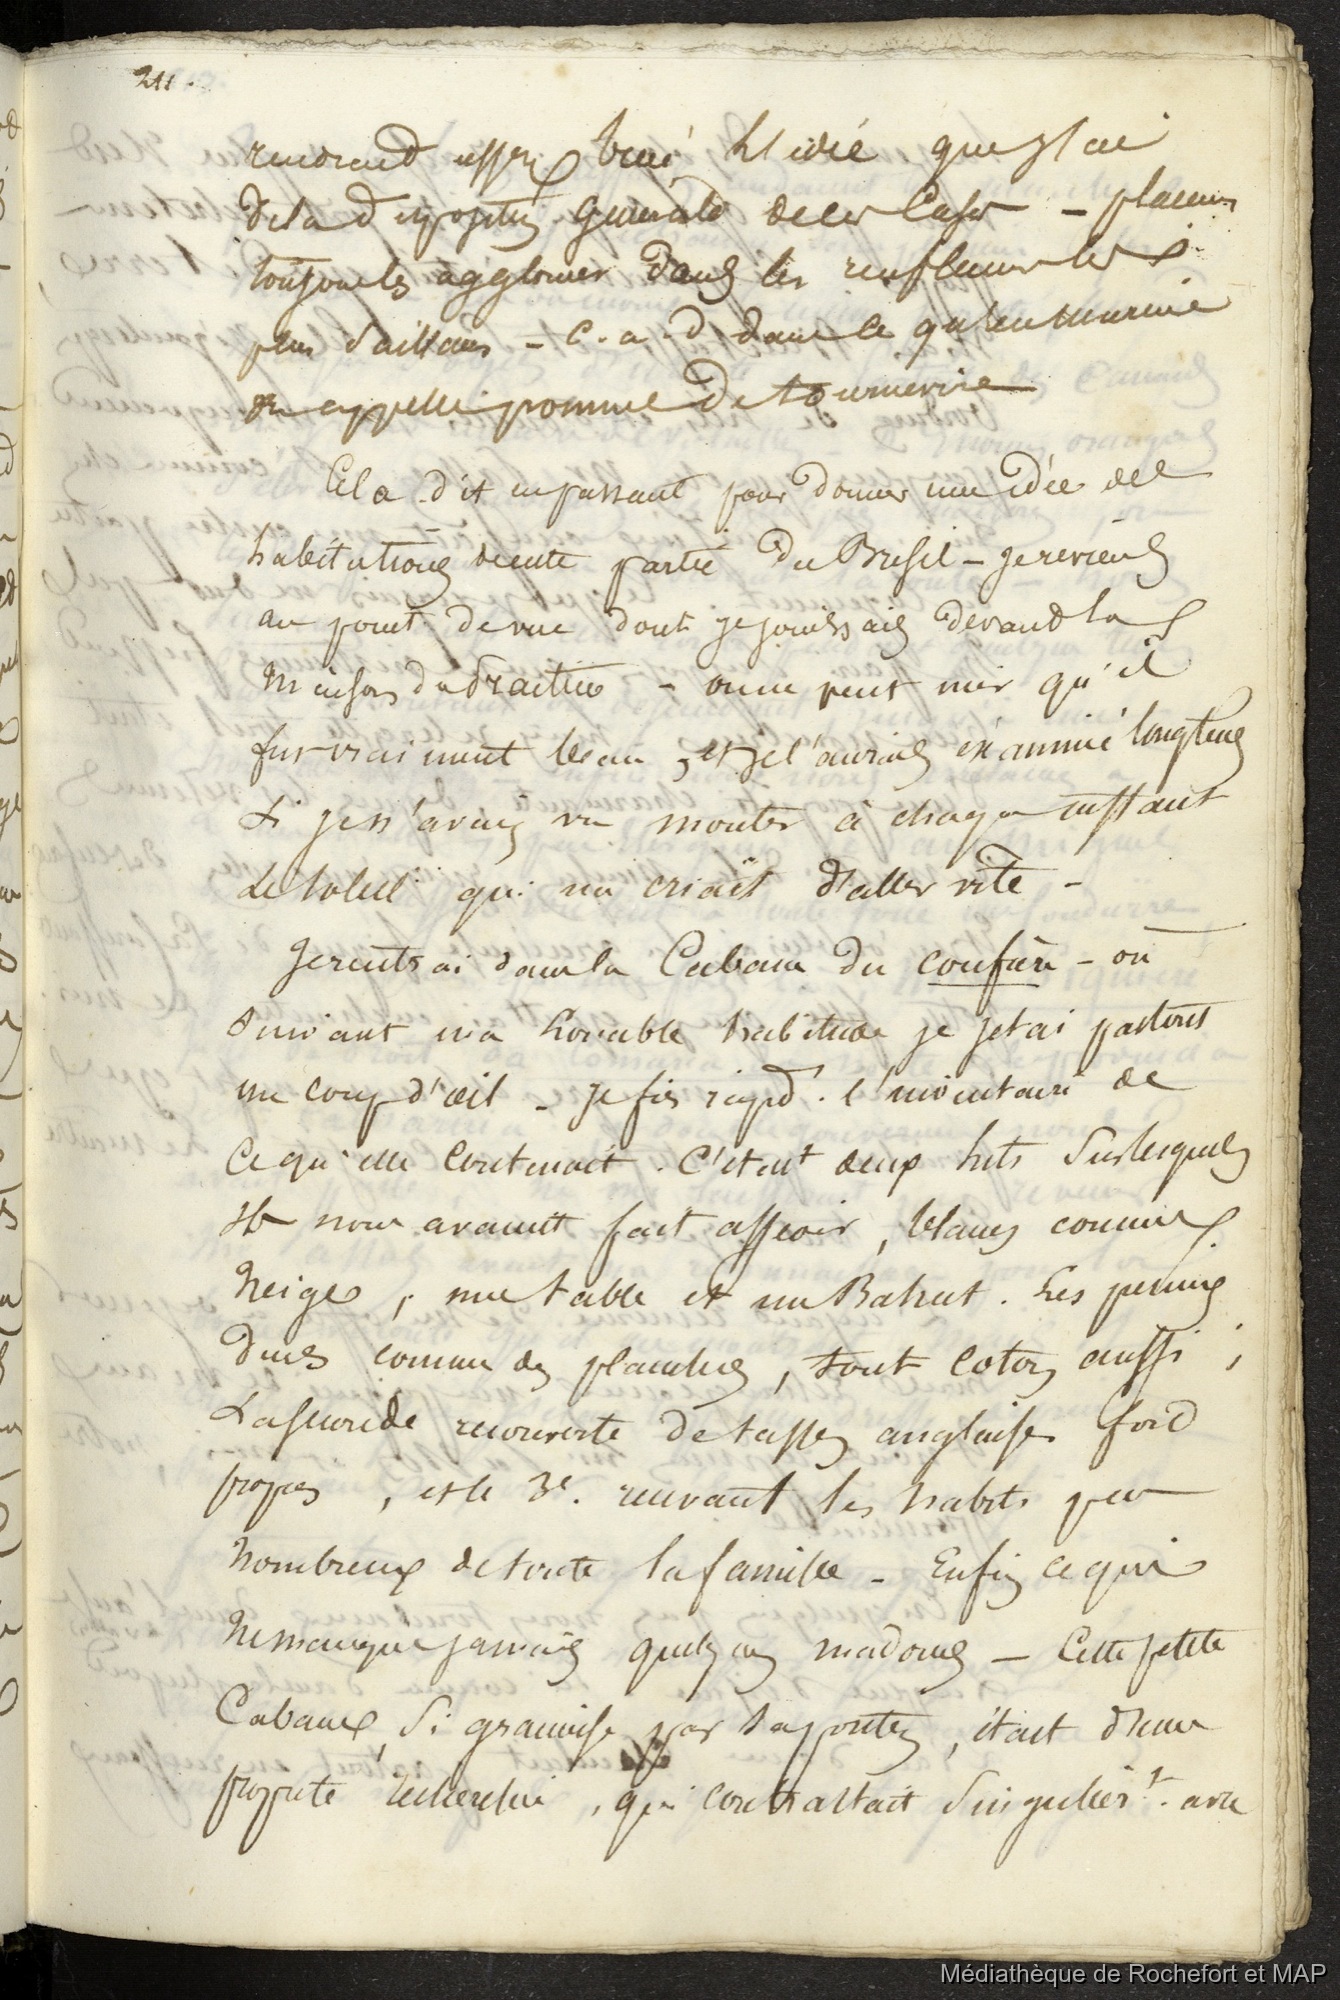 211.
rendrait assez bien l'idée que j'ai
de la disposition générale de ces Cases – placées
toujours les agglomer dans les renflements les
plus saillans – c. a. d dans ce qu'en marine
on appelle pomme de tournevire
Cela dit en passant pour donner une idée des
habitations de cette partie du Bresil – je reviens
au point de vue dont je jouissais devant la
maison du traitre – on ne peut nier qu'il
fut vraiment beau, et je l'aurais éxaminé longtems
si je n'avais vu monter à chaque instant
le soleil qui me criait d'aller vite –
Je rentrai dans la Cabane du confrère – où
suivant ma louable habitude je jetai partout
un coup d'œil – je fis rapidt. l'inventaire de
ce qu'elle contenait. C'etait deux lits sur lesquels
ils nous avaient fait asseoir, blancs comme
neige, une table et un Bahut. Les premiers
durs comme des planches, tout coton aussi;
la seconde recouverte de tasses anglaises fort
propres, et le 3e. renfermant les habits peu
nombreux de toute la famille – Enfin ce qui
ne manque jamais quelques madones – Cette petite
Cabane, si grande par sa portée, était d'une
propreté recherchée, qui contrastait singulièrt. avec
Médiathèque de Rochefort et MAP